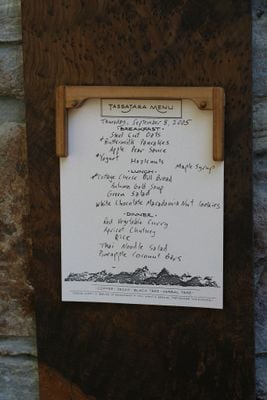 TASSAJARA MENU
Thursday, September 8, 2005
·BREAKFAST·
Steel Cut Oats
*Buttermilk Pancakes
Apple Pear Sauce
*Yogurt Hazelnuts Maple Syrup
·LUNCH·
*Cottage Cheese Dill Bread
Autumn Gold Soup
Green Salad
White Chocolate Macadamia Nut Cookies
·DINNER·
Red Vegetable Curry
Apricot Chutney
Rice
Thai Noodle Salad
Pineapple Coconut Bars
COFFEE · DECAF · BLACK TEAS · HERBAL TEAS